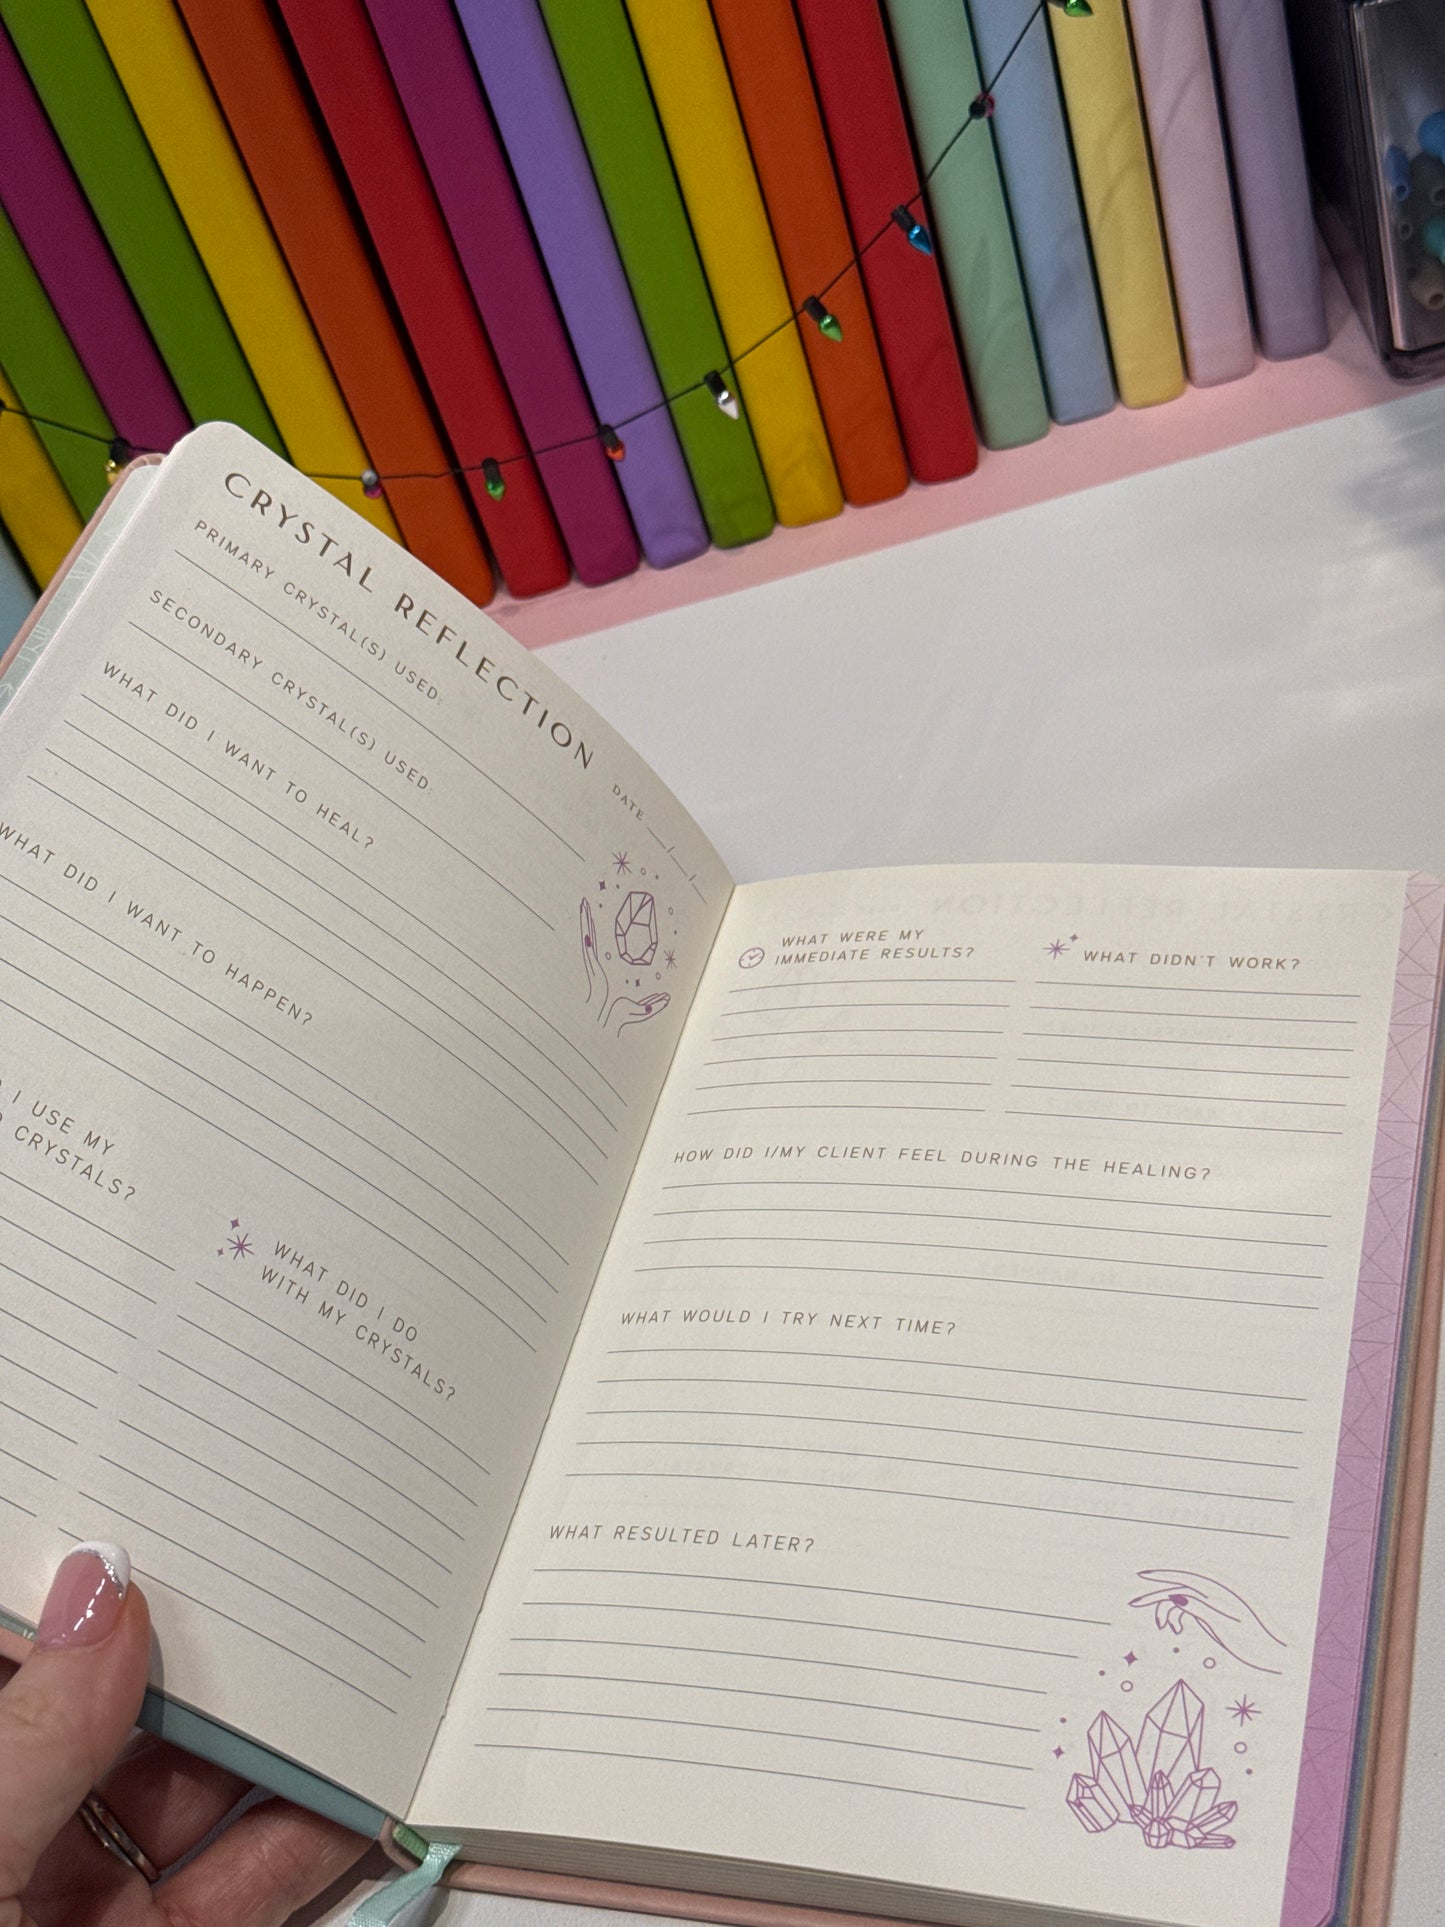 CRYSTAL REFLECTION
DATE __/__/__
PRIMARY CRYSTAL(S) USED:
SECONDARY CRYSTAL(S) USED:
WHAT DID I WANT TO HEAL?
WHAT DID I WANT TO HAPPEN?
I USE MY
CRYSTALS?
WHAT DID I DO
WITH MY CRYSTALS?
WHAT WERE MY
IMMEDIATE RESULTS?
WHAT DIDN'T WORK?
HOW DID I/MY CLIENT FEEL DURING THE HEALING?
WHAT WOULD I TRY NEXT TIME?
WHAT RESULTED LATER?